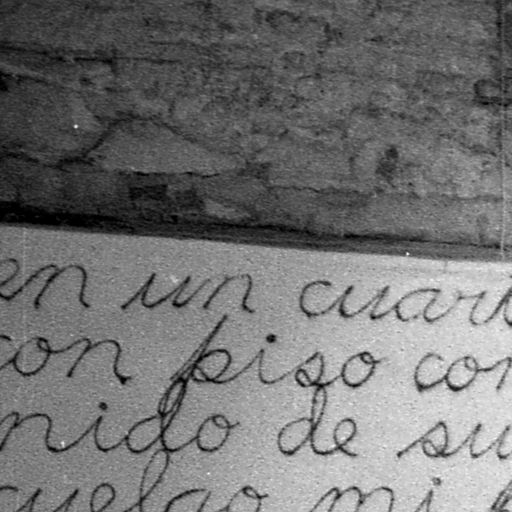 en un cuart
con piso con
nido de su
cuelgo mi